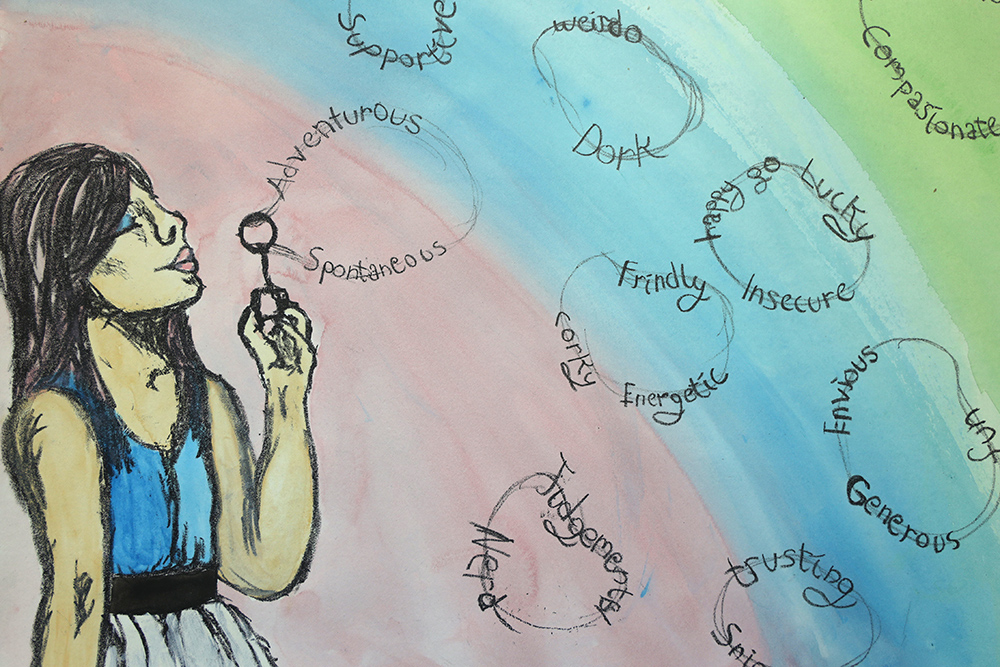 Supportive
weirdo
Dork
Compasionate
Adventurous
Spontaneous
Happy go Lucky
Insecure
Frindly
Corky
Energetic
Envious
Generous
Judgements
Nerd
trusting